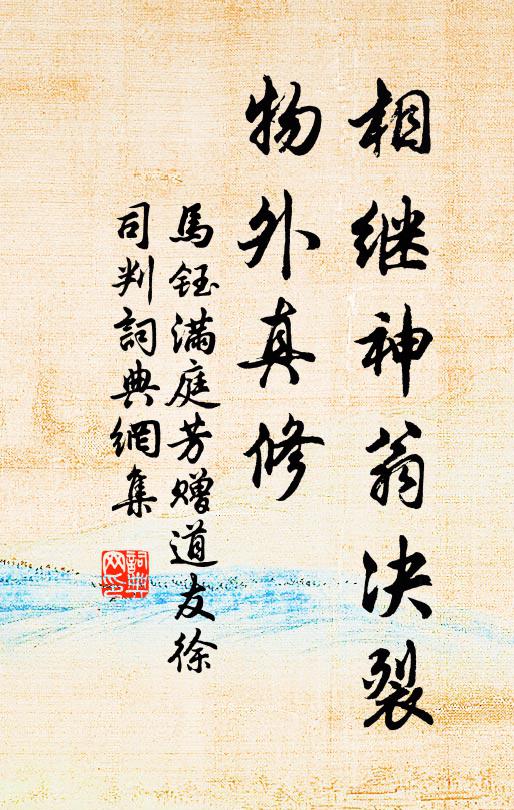 相继神翁决裂
物外真修
馬鈺满庭芳赠道友徐
司判詞典網集